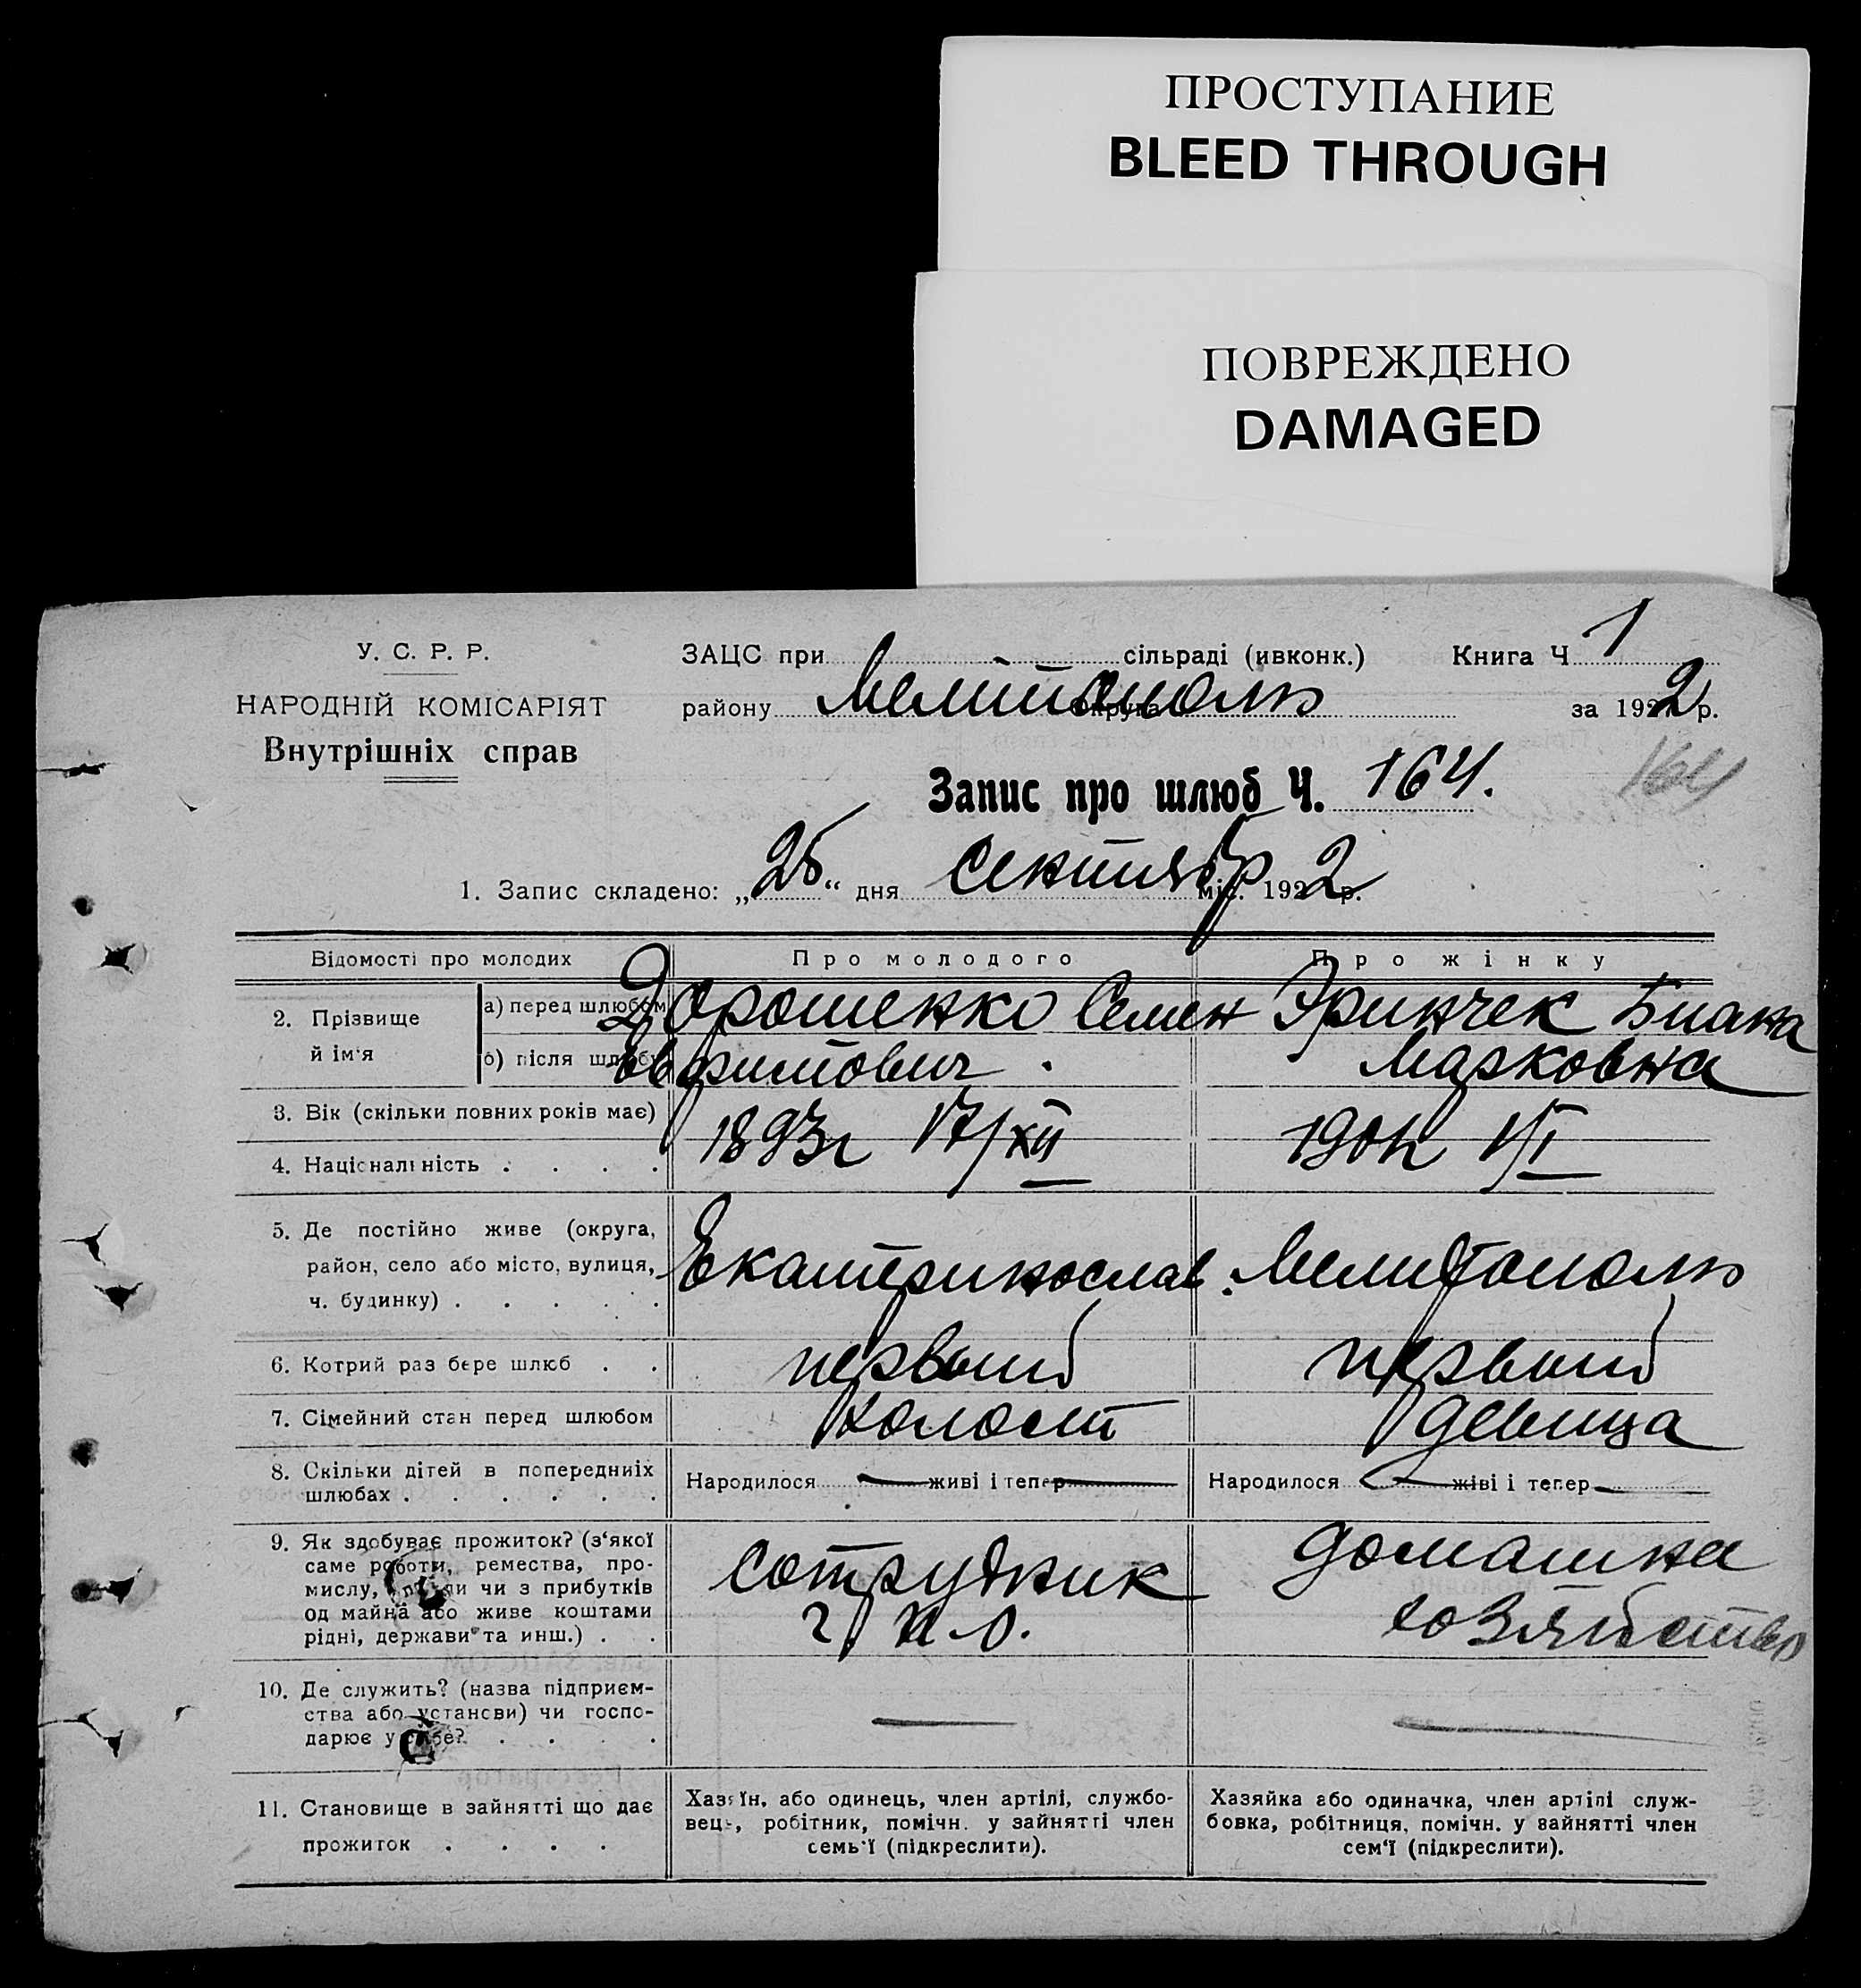 ПРОСТУПАНИЕ
BLEED THROUGH
ПОВРЕЖДЕНО
DAMAGED
У. С. Р. Р.
НАРОДНІЙ КОМІСАРІЯТ
Внутрішніх справ
ЗАЦС при сільраді (ивконк.) Книга Ч 1
району Мелитополь округа за 1922 р.
Запис про шлюб Ч. 164.
164
1. Запис складено: „25“ дня Сентябр міс. 1922 р.
Відомості про молодих Про молодого Про жінку
2. Прізвище й ім'я
а) перед шлюбом Дорошенко Семен Эринчек Биана
б) після шлюбу Марковна
3. Вік (скільки повних років має) 1893г 17/XII 1901г 1/I
4. Національність . . . .
5. Де постійно живе (округа,
район, село або місто, вулиця, Екатеринослав. Мелитополь
ч. будинку) . . . . .
6. Котрий раз бере шлюб . . первый первый
7. Сімейний стан перед шлюбом холост девица
8. Скільки дітей в попередниіх
шлюбах . . . . . . Народилося — живі і тепер — Народилося — жіві і тепер —
9. Як здобуває прожиток? (з‘якої
саме роботи, ремества, про-
мислу, чи з прибутків
од майна або живе коштами
рідні, держави та инш.) . .
сотрудник
домашна
хозяйство
10. Де служить? (назва підприєм-
ства або установи) чи госпо-
дарює у себе? . . . . — —
11. Становище в зайнятті що дає
прожиток . . . .
Хазяїн, або одинець, член артілі, службо-
вець, робітник, помічн. у зайнятті член
семь'ї (підкреслити).
Хазяйка або одиначка, член артілі служ-
бовка, робітниця, помічн. у зайнятті член
сем'ї (підкреслити).